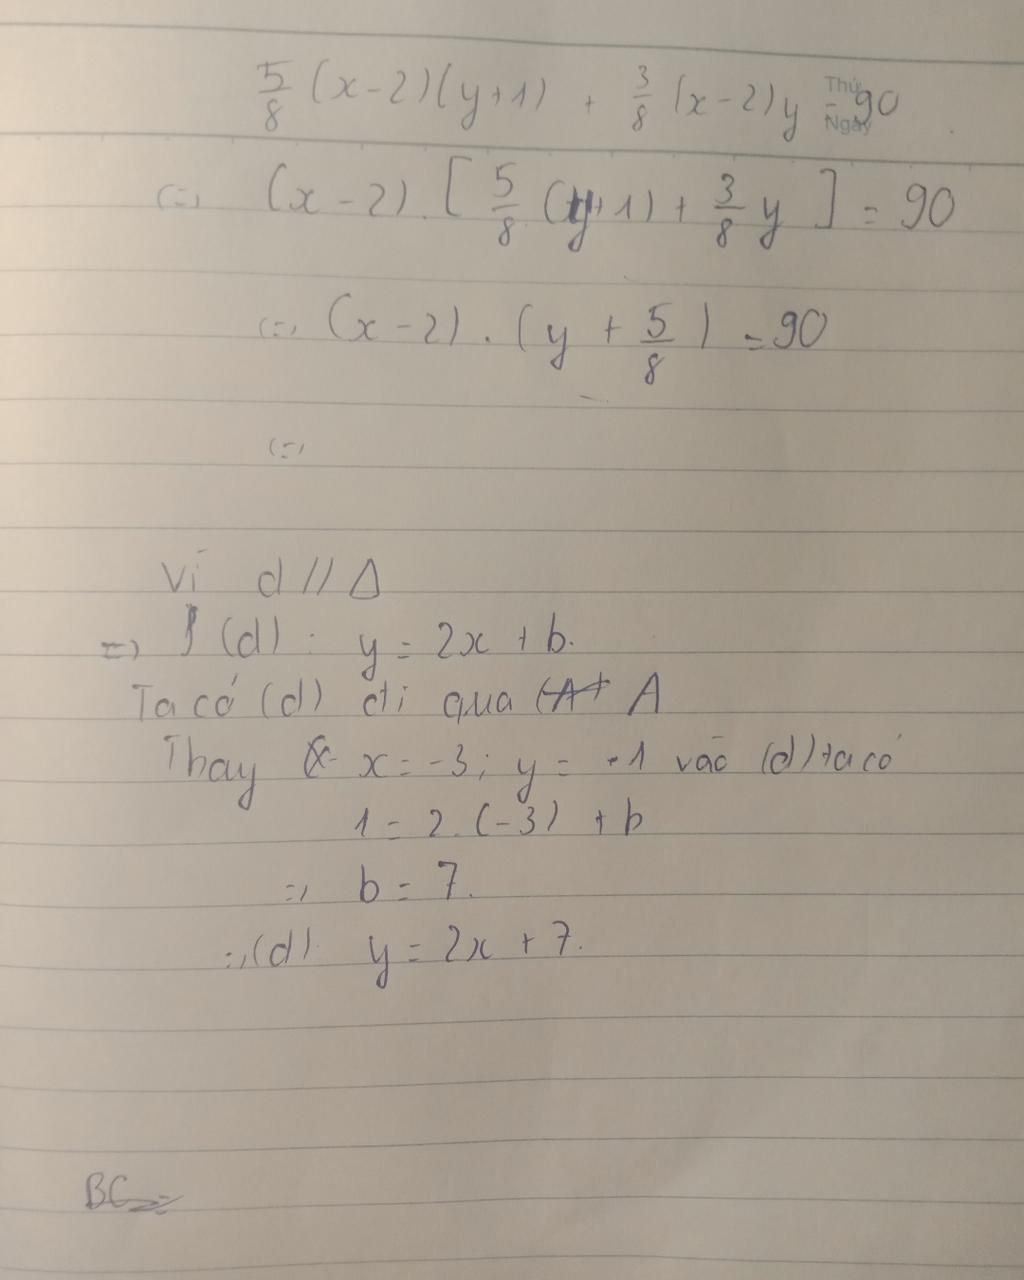 5/8 (x-2)(y+1) + 3/8 (x-2)y = 90
Thứ
Ngày
(=) (x-2).[5/8 (y+1) + 3/8 y] = 90
(=) (x-2).(y + 5/8) = 90
(=)
Vì d // Δ
=) (d): y = 2x + b.
Ta có (d) đi qua A
Thay x = -3; y = 1 vào (d) ta có
1 = 2.(-3) + b
=) b = 7.
=) (d): y = 2x + 7.
BC =